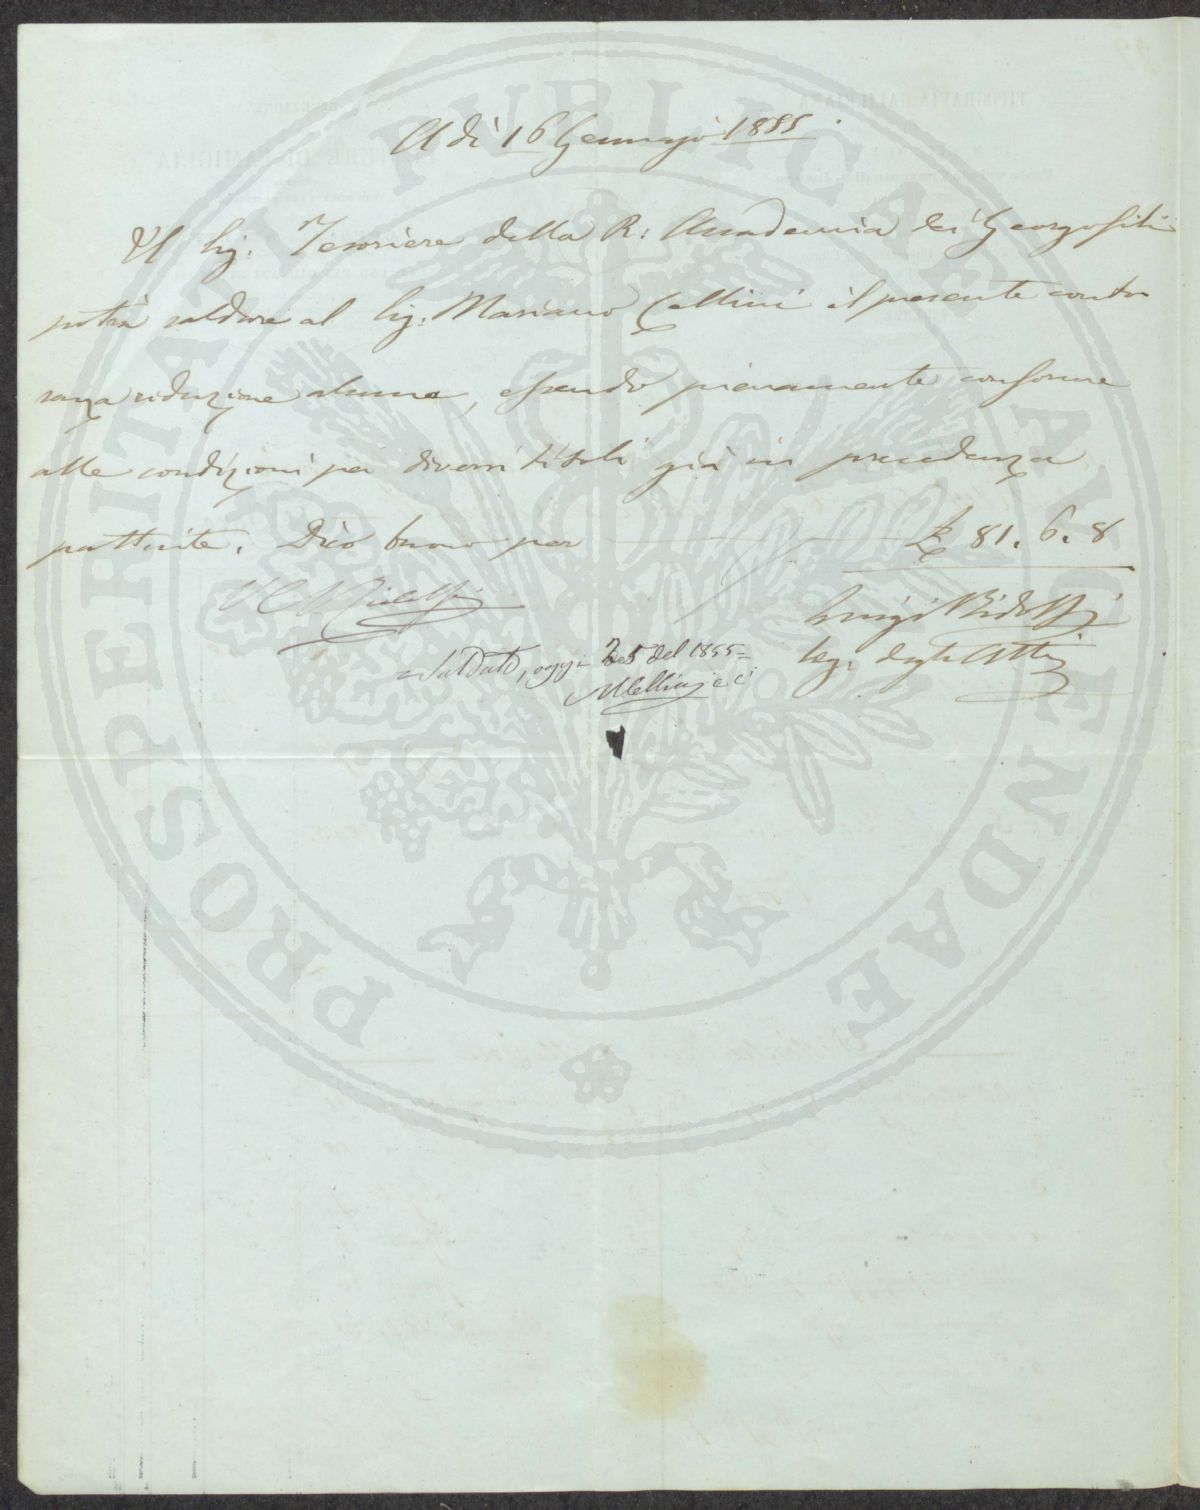 A dì 16 Gennajo 1855.
Il Sig: Tesoriere della R: Accademia dei Georgofili
potrà saldare al Sig: Mariano Cellini il presente conto
senza riduzione alcuna, essendo pienamente conforme
alle condizioni pei diversi titoli già in precedenza
pattuite. Dico buono per £ 81. 6. 8
V. C. Ridolfi
Luigi Ridolfi
Seg. degli Atti
Saldato, oggi del 1855=
MCellini
PROSPERITATI PUBLICAE AUGENDAE